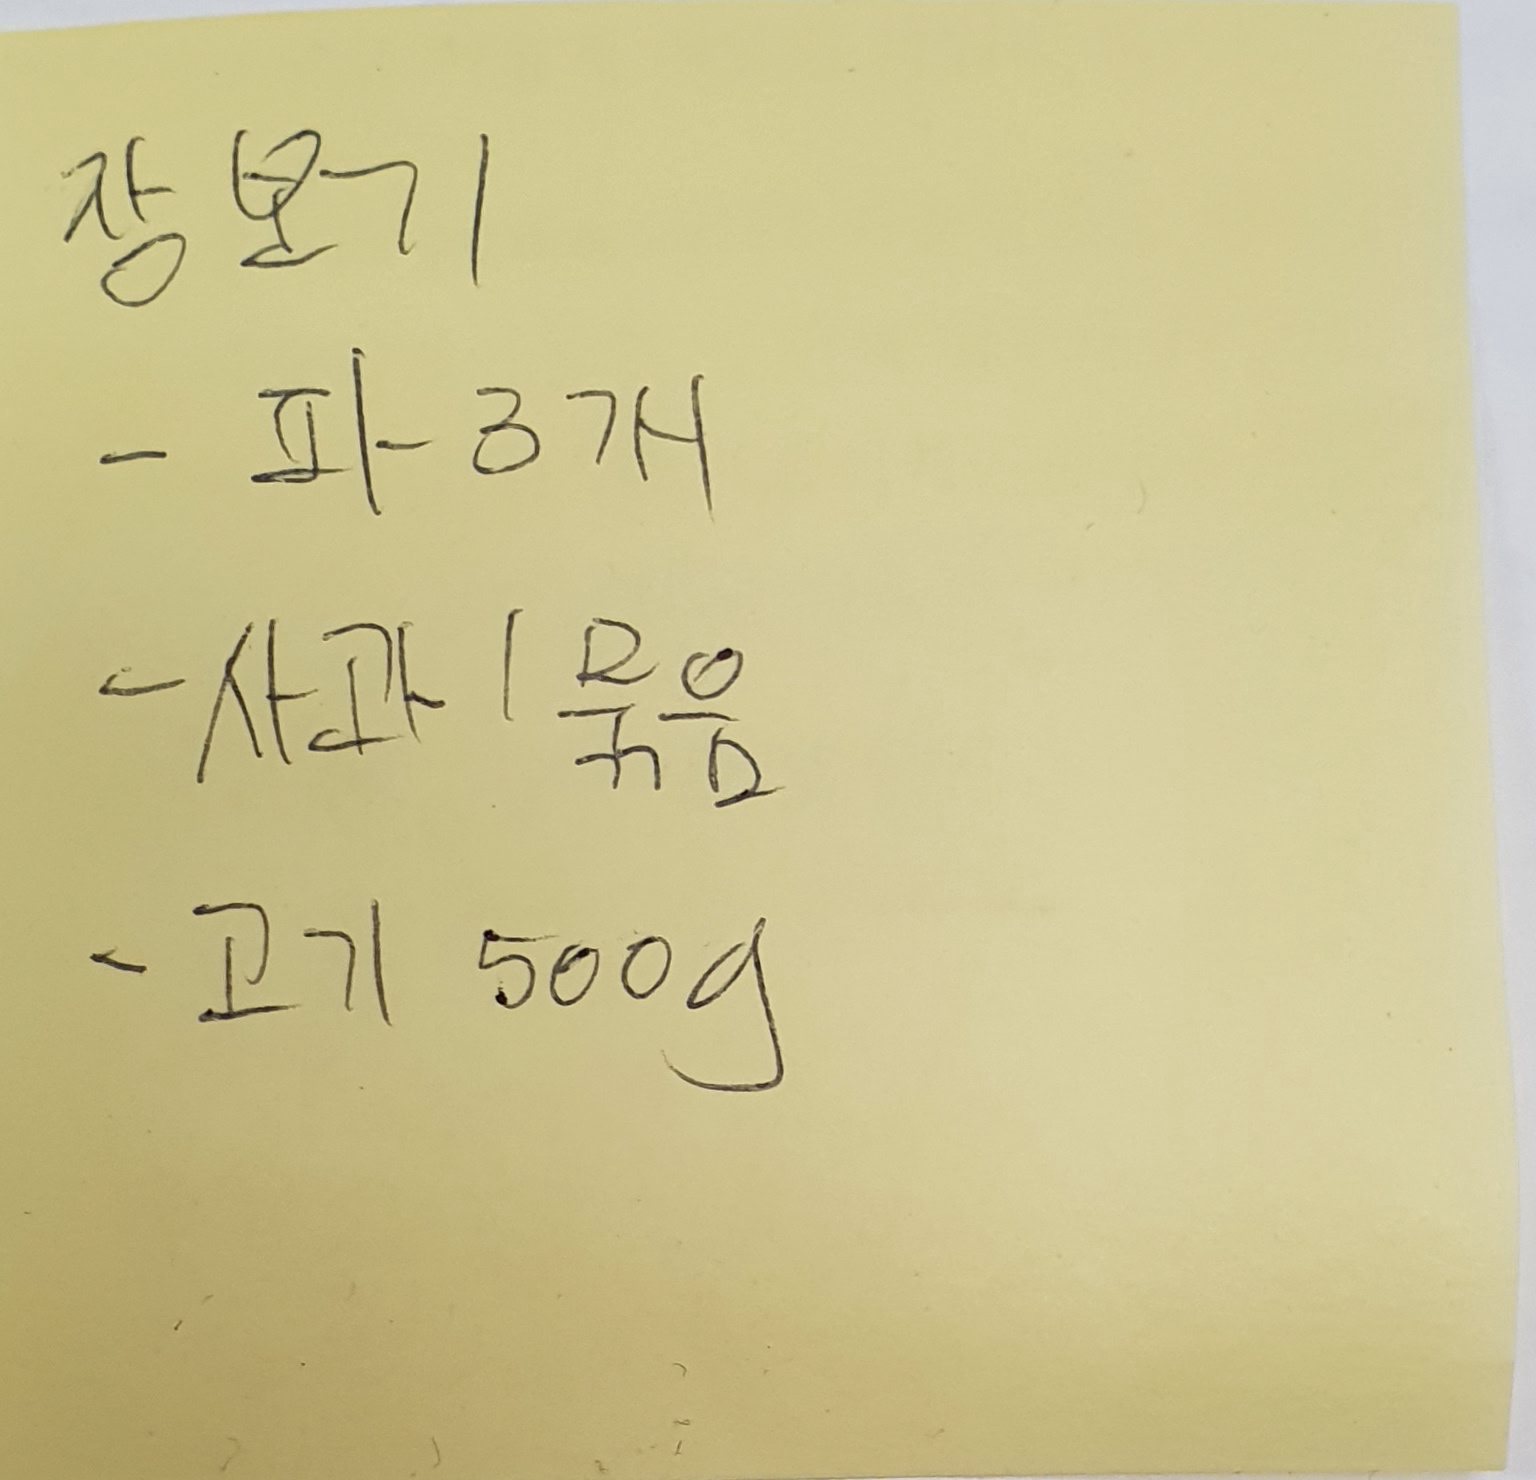 장보기
- 파 3개
- 사과 1 묶음
- 고기 500g